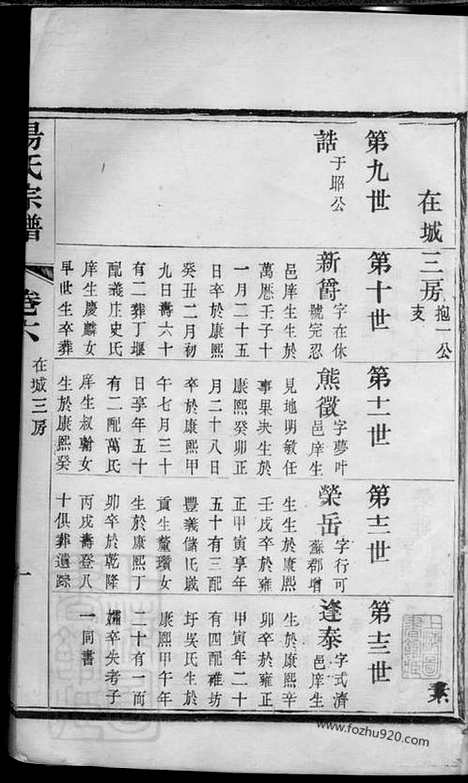 在城三房抱一公支
第九世
誥于耶公
第十世
新爵字在休號完忍
邑庠生生於
萬厯壬子十
一月二十五
日卒於康熙
癸丑二月初
九日壽六十
有二葬丁堰
配義庄史氏
庠生慶麟女
早世生卒葬
第十一世
熊徵字夢叶邑庠生
見地明敏任
事果決生於
康熙癸卯正
月二十八日
卒於康熙甲
午七月三十
日享年五十
有二配萬氏
庠生叔翰女
生於康熙癸
第十二世
榮岳字行可蘇郡增
生生於康熙
壬戌卒於雍
正甲寅享年
五十有三配
豐義儲氏歲
貢生董瓚女
生於康熙丁
卯卒於乾隆
丙戌壽登八
十俱葬遺踪
第十三世
逢泰字式濟邑庠生
生於康熙辛
卯卒於雍正
甲寅年二十
有四配雅坊
圩吳氏生於
康熙甲午年
二十有一而
孀卒失考子
一同書
湯氏宗譜
卷六
在城三房
一
www.fozhu920.com